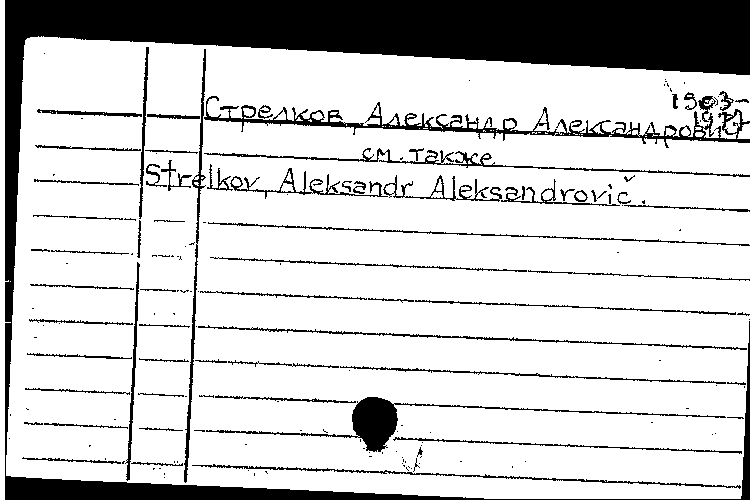 1903-
1977
Стрелков, Александр Александрович
см. также
Strelkov, Aleksandr Aleksandrovič.